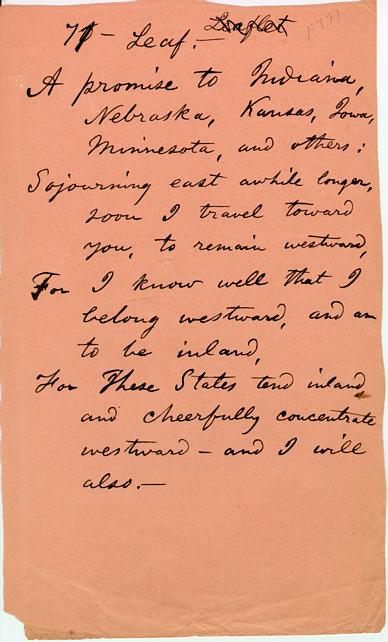 71 - Leaf. - Leaflet
A promise to Indiana,
Nebraska, Kansas, Iowa,
Minnesota, and others:
Sojourning east awhile longer,
soon I travel toward
you, to remain westward,
For I know well that I
belong westward, and am
to be inland,
For These States tend inland
and cheerfully concentrate
westward - and I will
also. -